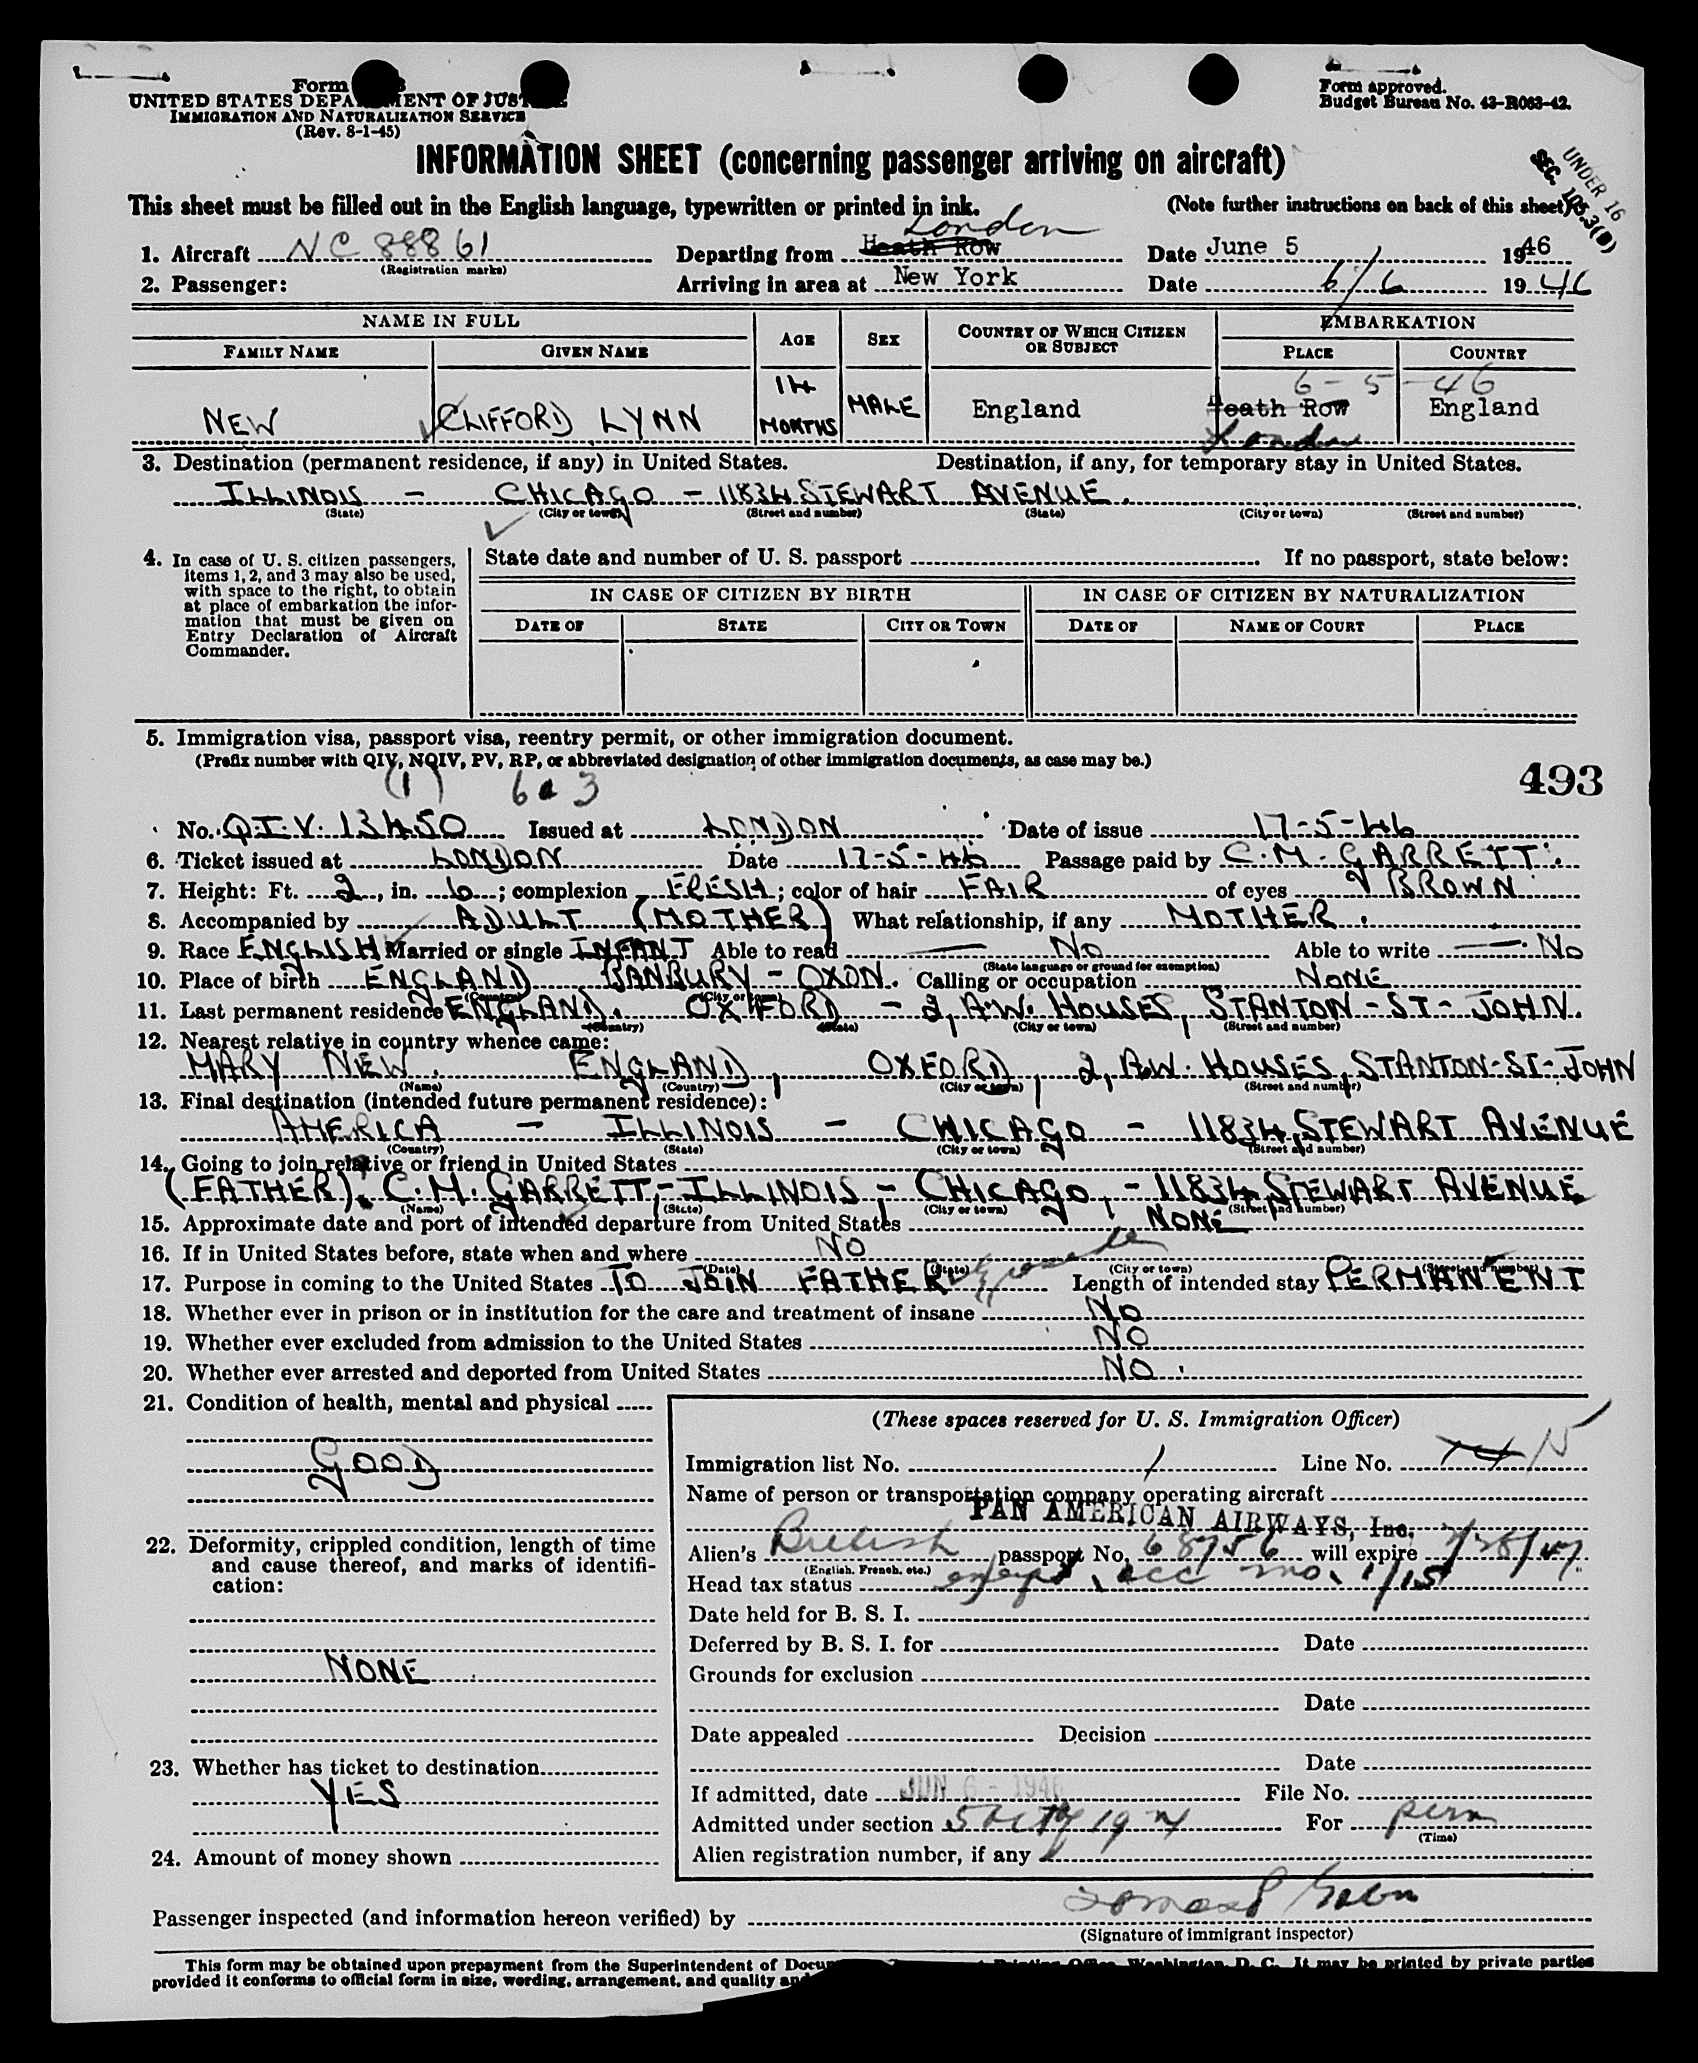 Form
Form approved.
UNITED STATES DEPARTMENT OF JUSTICE
Budget Bureau No. 43-R063-42.
IMMIGRATION AND NATURALIZATION SERVICE
(Rev. 8-1-45)
UNDER 16
SEC. 105.3(B)
INFORMATION SHEET (concerning passenger arriving on aircraft)
This sheet must be filled out in the English language, typewritten or printed in ink. (Note further instructions on back of this sheet)
London
1. Aircraft NC 88861 Departing from Heath Row Date June 5 1946
(Registration marks)
2. Passenger: Arriving in area at New York Date 6/6 1946
NAME IN FULL AGE SEX COUNTRY OF WHICH CITIZEN OR SUBJECT EMBARKATION
FAMILY NAME GIVEN NAME PLACE COUNTRY
6-5-46
NEW CLIFFORD LYNN 14 MONTHS MALE England Heath Row England
London
3. Destination (permanent residence, if any) in United States. Destination, if any, for temporary stay in United States.
ILLINOIS - CHICAGO - 11834 STEWART AVENUE.
(State) (City or town) (Street and number) (State) (City or town) (Street and number)
4. In case of U. S. citizen passengers, items 1, 2, and 3 may also be used, with space to the right, to obtain at place of embarkation the information that must be given on Entry Declaration of Aircraft Commander.
State date and number of U. S. passport If no passport, state below:
IN CASE OF CITIZEN BY BIRTH IN CASE OF CITIZEN BY NATURALIZATION
DATE OF STATE CITY OR TOWN DATE OF NAME OF COURT PLACE
5. Immigration visa, passport visa, reentry permit, or other immigration document.
(Prefix number with QIV, NQIV, PV, RP, or abbreviated designation of other immigration documents, as case may be.)
493
(1) 6 a 3
No. Q.I.V. 13450 Issued at LONDON Date of issue 17-5-46
6. Ticket issued at LONDON Date 17-5-46 Passage paid by C.M. GARRETT.
7. Height: Ft. 2, in. 6; complexion FRESH; color of hair FAIR of eyes BROWN
8. Accompanied by ADULT (MOTHER) What relationship, if any MOTHER.
9. Race ENGLISH Married or single INFANT Able to read No Able to write No
(State language or ground for exemption)
10. Place of birth ENGLAND BANBURY - OXON. Calling or occupation NONE
(Country) (City or town)
11. Last permanent residence ENGLAND. OXFORD - 2, A.W. HOUSES, STANTON-ST-JOHN.
(Country) (State) (City or town) (Street and number)
12. Nearest relative in country whence came:
MARY NEW. ENGLAND, OXFORD, 2, A.W. HOUSES, STANTON-ST-JOHN
(Name) (Country) (City or town) (Street and number)
13. Final destination (intended future permanent residence):
AMERICA - ILLINOIS - CHICAGO - 11834, STEWART AVENUE
(Country) (State) (City or town) (Street and number)
14. Going to join relative or friend in United States
(FATHER). C.M. GARRETT, - ILLINOIS - CHICAGO, - 11834, STEWART AVENUE
(Name) (State) (City or town) (Street and number)
15. Approximate date and port of intended departure from United States NONE
16. If in United States before, state when and where NO
(Date) (State) (City or town) (Street and number)
17. Purpose in coming to the United States TO JOIN FATHER Length of intended stay PERMANENT
18. Whether ever in prison or in institution for the care and treatment of insane NO
19. Whether ever excluded from admission to the United States NO
20. Whether ever arrested and deported from United States NO.
21. Condition of health, mental and physical
GOOD
22. Deformity, crippled condition, length of time and cause thereof, and marks of identification:
NONE
23. Whether has ticket to destination
YES
24. Amount of money shown
(These spaces reserved for U. S. Immigration Officer)
Immigration list No. 1 Line No. 14 15
Name of person or transportation company operating aircraft
PAN AMERICAN AIRWAYS, Inc.
Alien's British passport No. 68756 will expire 7/28/47
(English, French, etc.)
Head tax status exempt, acc mo. 1/15
Date held for B. S. I.
Deferred by B. S. I. for Date
Grounds for exclusion
Date
Date appealed Decision
Date
If admitted, date JUN 6 - 1946 File No.
Admitted under section 5 1924 For perm
(Time)
Alien registration number, if any
Passenger inspected (and information hereon verified) by
(Signature of immigrant inspector)
This form may be obtained upon prepayment from the Superintendent of Washington, D. C. It may be printed by private parties
provided it conforms to official form in size, wording, arrangement, and quality